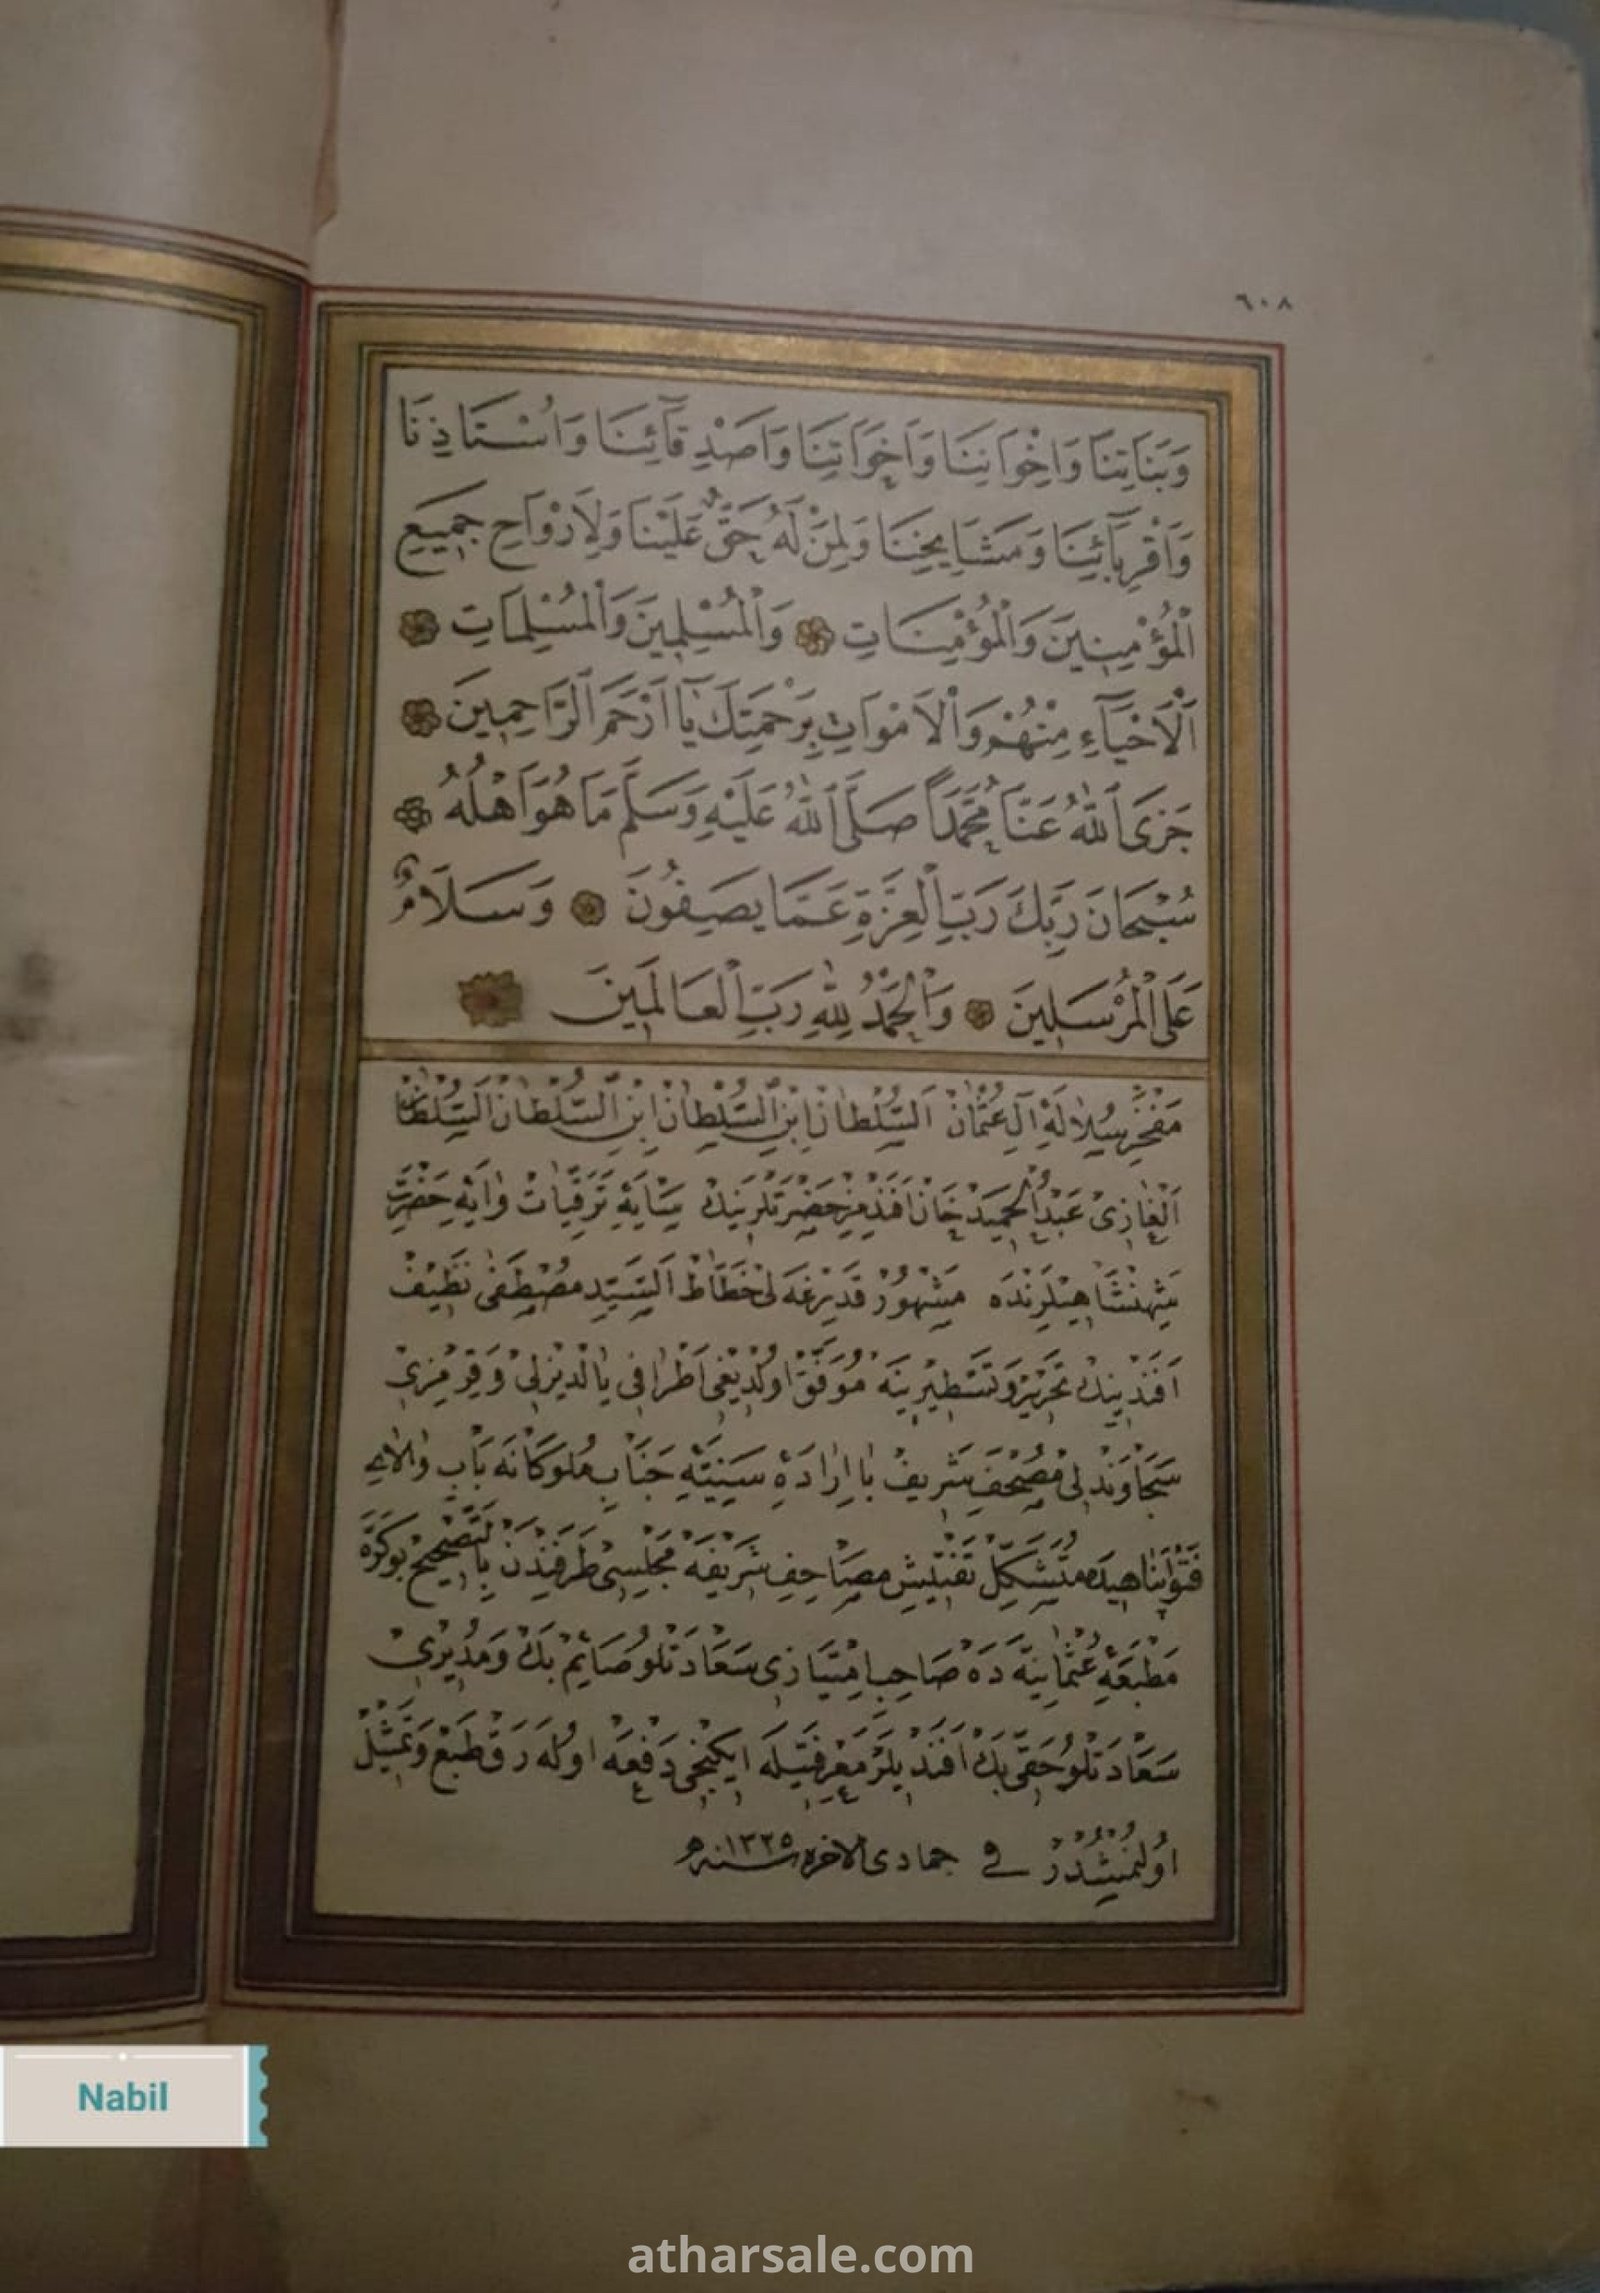 ٦٠٨
وَبَنَاتِنَا وَاِخْوَانِنَا وَاَخَوَاتِنَا وَاَصْدِقَآئِنَا وَاُسْتَاذِنَا
وَاَقْرِبَآئِنَا وَمَشَايِخِنَا وَلِمَنْ لَهُ حَقٌّ عَلَيْنَا وَلِاَرْوَاحِ جَمِيعِ
الْمُؤْمِنِينَ وَالْمُؤْمِنَاتِ وَالْمُسْلِمِينَ وَالْمُسْلِمَاتِ
اَلْاَحْيَآءِ مِنْهُمْ وَالْاَمْوَاتِ بِرَحْمَتِكَ يَآ اَرْحَمَ الرَّاحِمِينَ
جَزَى اللّٰهُ عَنَّا مُحَمَّدًا صَلَّى اللّٰهُ عَلَيْهِ وَسَلَّمَ مَا هُوَ اَهْلُهُ
سُبْحَانَ رَبِّكَ رَبِّ الْعِزَّةِ عَمَّا يَصِفُونَ وَسَلَامٌ
عَلَى الْمُرْسَلِينَ وَالْحَمْدُ لِلّٰهِ رَبِّ الْعَالَمِينَ
مَفْخَرِ سُلَالَهِٔ اٰلِ عُثْمَانْ اَلسُّلْطَانْ اِبْنِ السُّلْطَانْ اِبْنِ السُّلْطَانْ السُّلْطَانْ
اَلْغَازِى عَبْدُ الْحَمِيدْ خَانْ اَفَنْدِمِزْ حَضْرَتْلَرِينِكْ سَايَهِٔ تَرَقِّيَاتْ وَايَهِٔ حَضْرَتِ
شَهِنْشَاهِيلَرِنْدَه مَشْهُورْ قَدِرْغَه لِى خَطَّاطْ السَّيِّدِ مُصْطَفٰى نَظِيفْ
اَفَنْدِينِكْ تَحْرِيرْ وَتَسْطِيرِينَه مُوَفَّقْ اُولْدِيغِى اَطْرَافِى يَالْدِيزْلِى وَقِرْمِزِى
سَجَاوَنْدْلِى مُصْحَفِ شَرِيفْ بَا اِرَادَهِٔ سَنِيَّهِٔ جَنَابِ مُلُوكَانَه بَابِ وَالَاىِ
فَتْوَاپَنَاهِيدَه مُتَشَكِّلْ تَفْتِيشِ مَصَاحِفِ شَرِيفَه مَجْلِسِى طَرَفِنْدَنْ بِالتَّصْحِيحْ بُو كَرَّه
مَطْبَعَهِٔ عُثْمَانِيَّه دَه صَاحِبِ اِمْتِيَازِى سَعَادَتْلُو صَائِمْ بَكْ وَمُدِيرِى
سَعَادَتْلُو حَقِّى بَكْ اَفَنْدِيلَرْ مَعْرِفَتِيلَه اِيكِنْجِى دَفْعَه اُولَه رَقْ طَبْعْ وَتَمْثِيلْ
اُولُنْمِشْدُرْ فى جمادى الاخره سنه ١٣٢٥
Nabil
atharsale.com